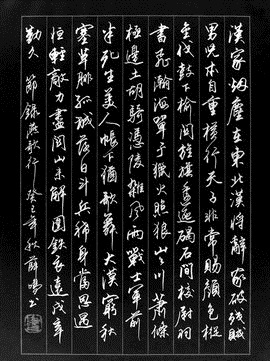 漢家烟塵在東北漢將辭家破殘賊
男兒本自重橫行天子非常賜顏色摐
金伐鼓下榆關旌旆逶迤碣石間校尉羽
書飛瀚海單于獵火照狼山山川蕭條
極邊土胡騎憑陵雜風雨戰士軍前
半死生美人帳下猶歌舞大漠窮秋
塞草腓孤城落日斗兵稀身當恩遇
恒輕敵力盡關山未解圍鐵衣遠戍辛
勤久 節錄燕歌行 癸巳年秋薛鳴書